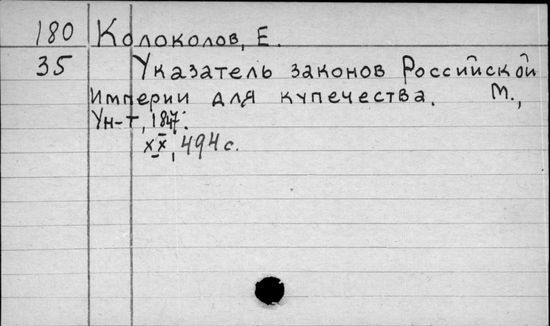 180 Колоколов, Е.
35 Указатель законов Российской
Империи для купечества. М.,
Ун-т, 1847.
XX, 494 с.